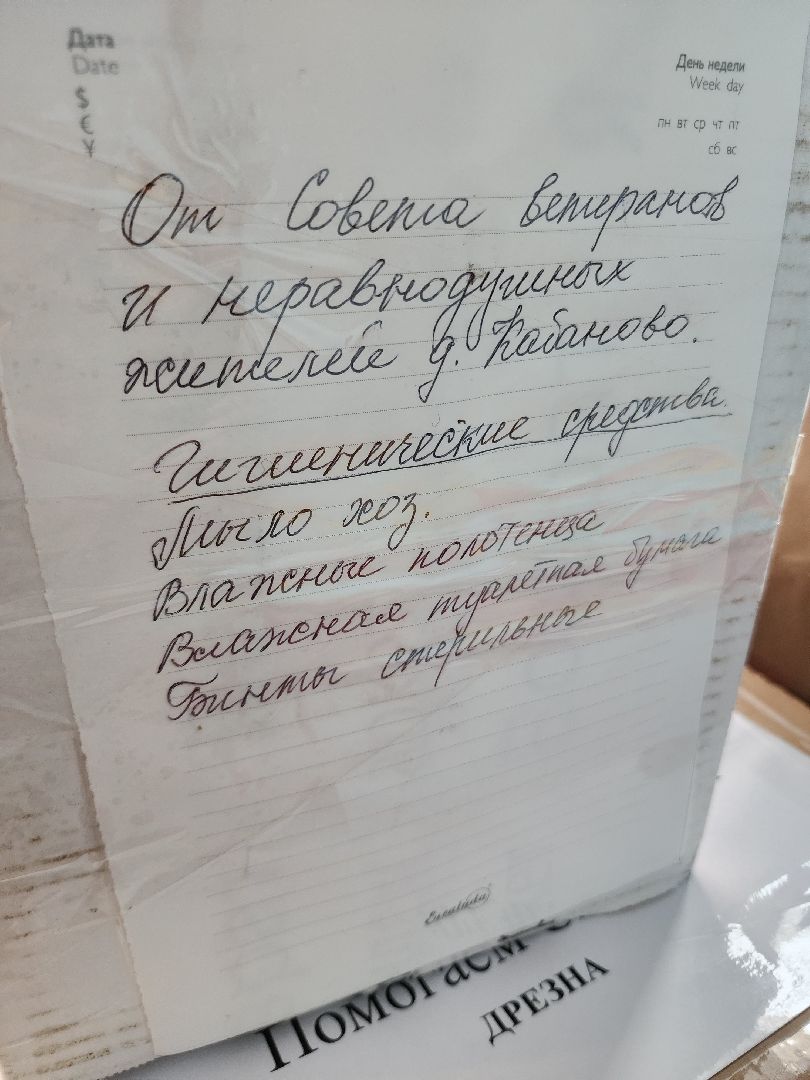 Дата
Date
$
€
¥
День недели
Week day
пн вт ср чт пт
сб вс
От Совета ветеранов
и неравнодушных
жителей д. Кабаново.
Гигиенические средства
Мыло хоз.
Влажные полотенца
Влажная туалетная бумага
Бинты стерильные
Помогаем
ДРЕЗНА